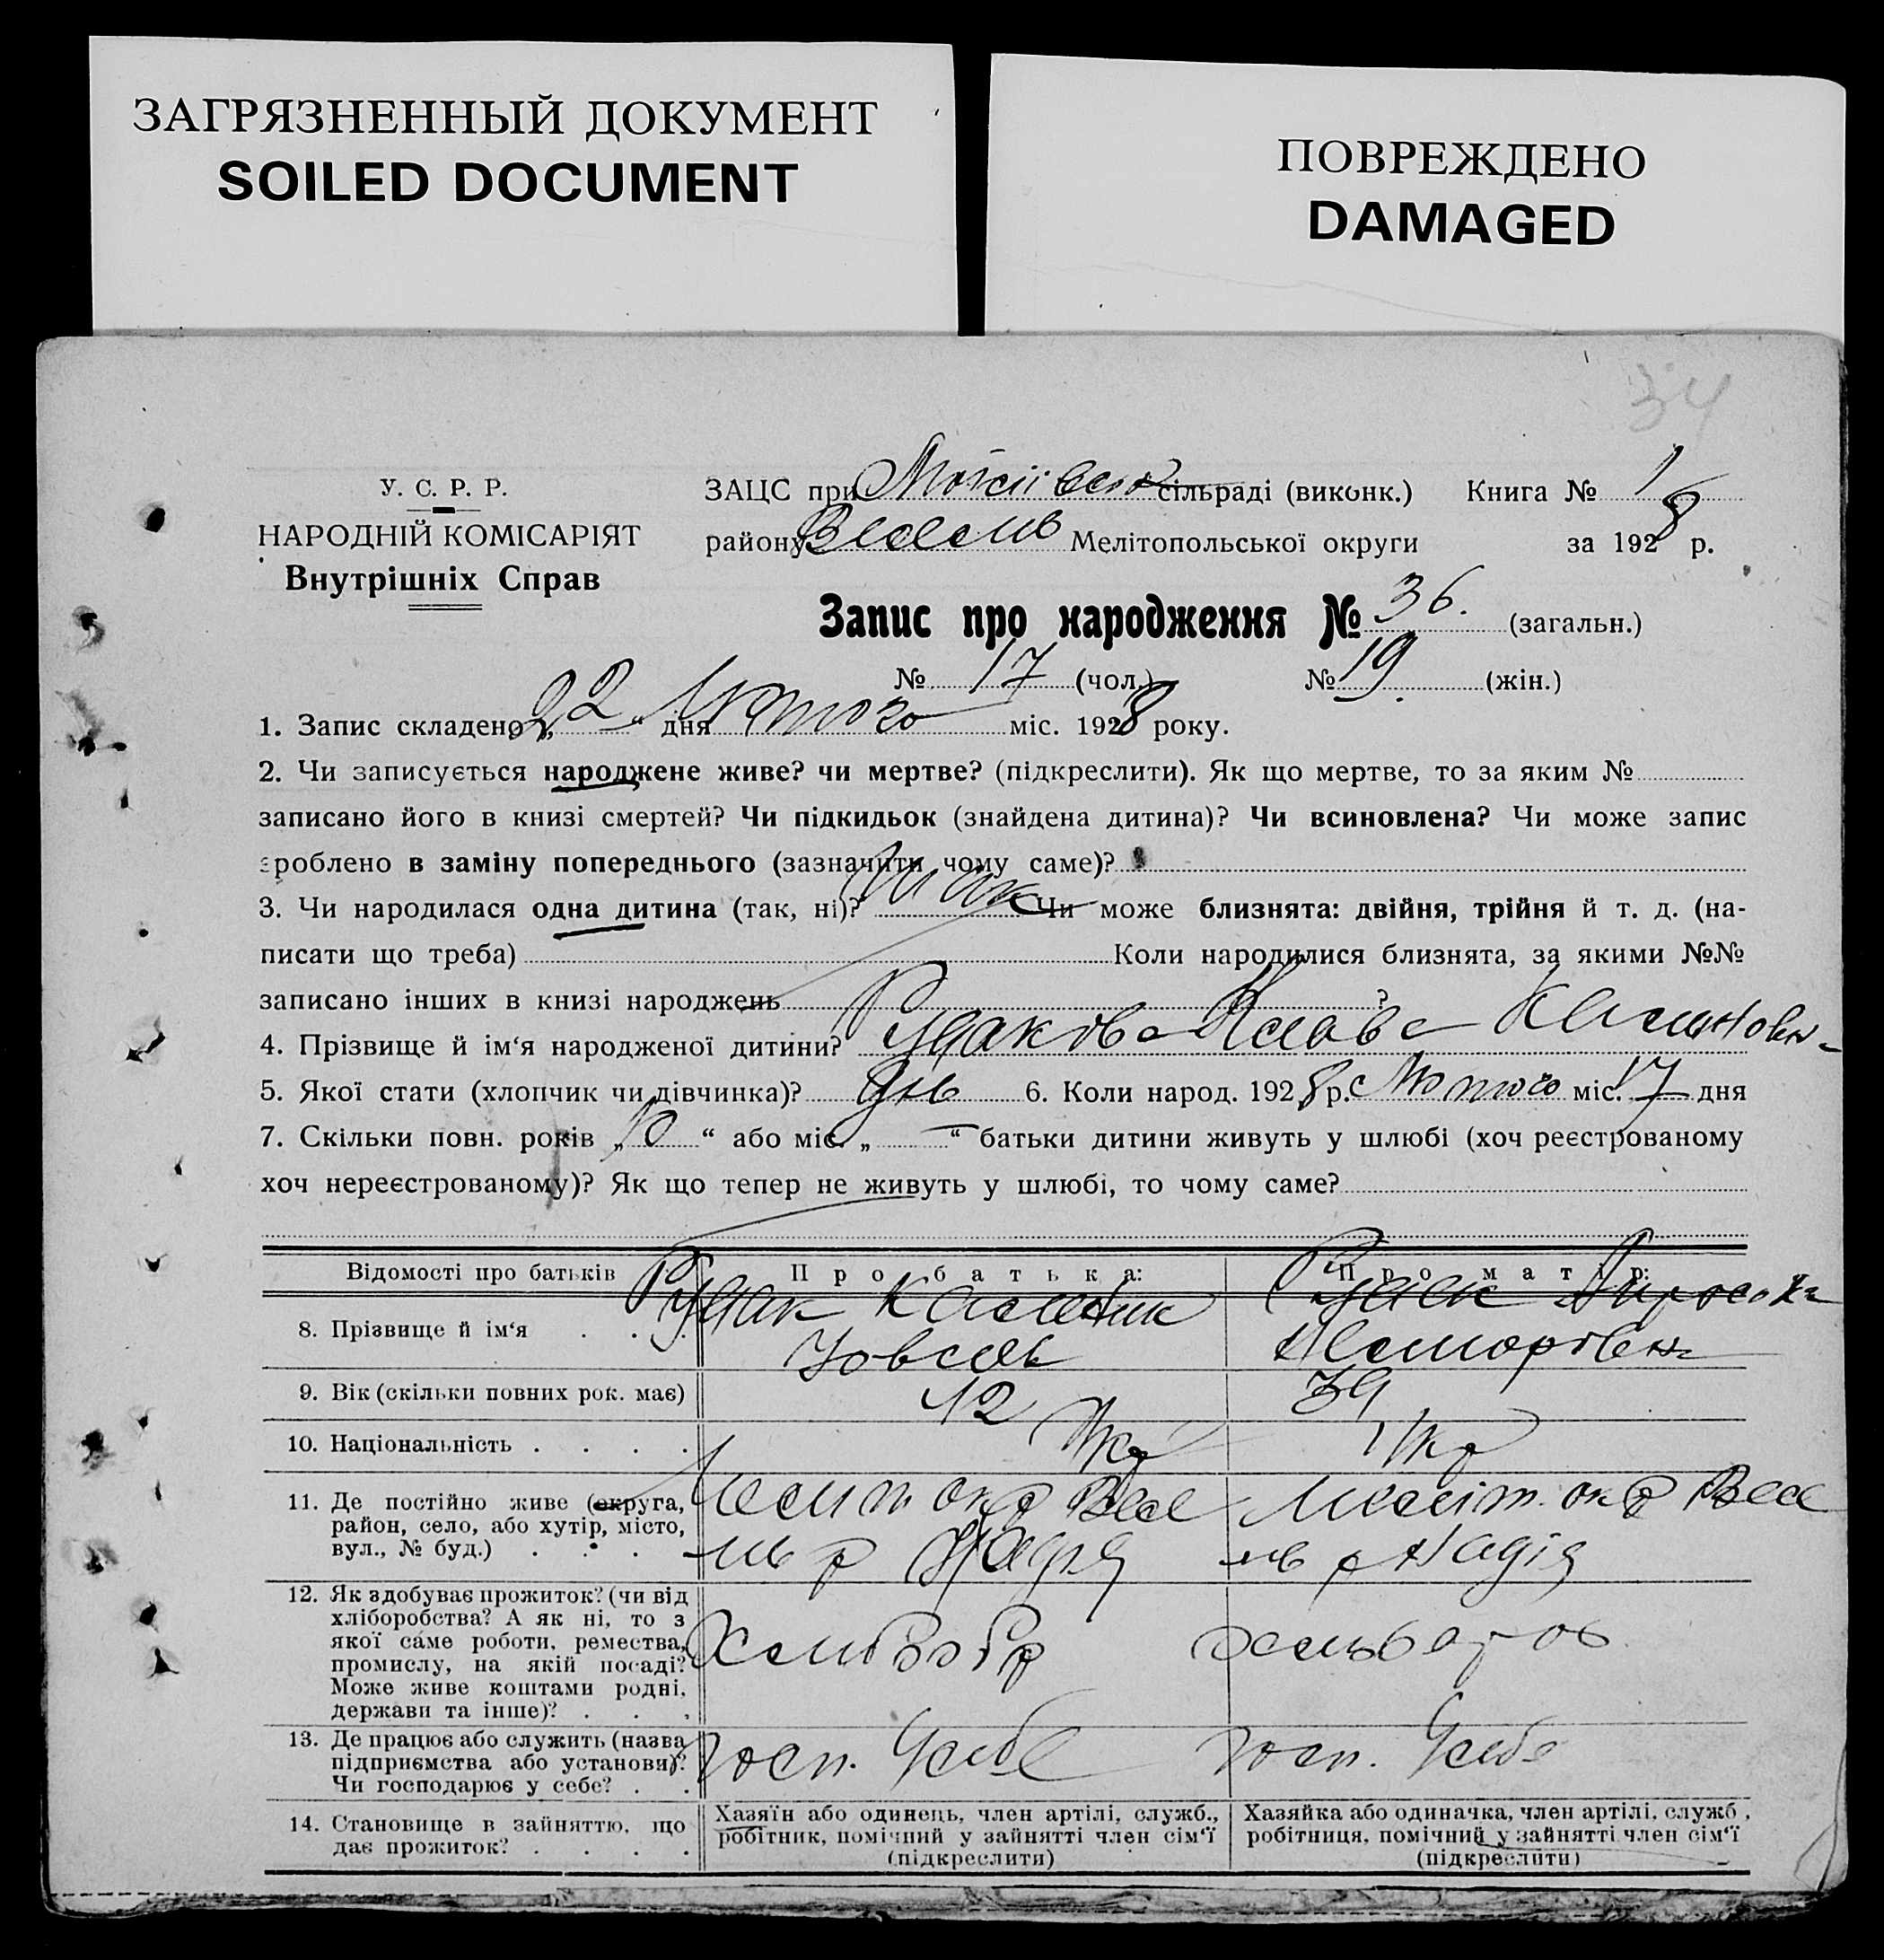 ЗАГРЯЗНЕННЫЙ ДОКУМЕНТ
SOILED DOCUMENT
ПОВРЕЖДЕНО
DAMAGED
34
У. С. Р. Р.
НАРОДНІЙ КОМІСАРІЯТ
Внутрішніх Справ
ЗАЦС при сільраді (виконк.) Книга № 1
району Мелітопольської округи за 1928 р.
Запис про народження № 36. (загальн.)
№ 17 (чол.) № 19. (жін.)
1. Запис складено „22“ дня Лютого міс. 1928 року.
2. Чи записується народжене живе? чи мертве? (підкреслити). Як що мертве, то за яким №
записано його в книзі смертей? Чи підкидьок (знайдена дитина)? Чи всиновлена? Чи може запис
зроблено в заміну попереднього (зазначити чому саме)?
3. Чи народилася одна дитина (так, ні)? так Чи може близнята: двійня, трійня й т. д. (на-
писати що треба) Коли народилися близнята, за якими №№
записано інших в книзі народжень ?
4. Прізвище й ім‘я народженої дитини?
5. Якої стати (хлопчик чи дівчинка)? дів 6. Коли народ. 1928 р. Лютого міс. 17 дня
7. Скільки повн. років „10“ або міс. „ “ батьки дитини живуть у шлюбі (хоч реєстрованому
хоч нереєстрованому)? Як що тепер не живуть у шлюбі, то чому саме?
Відомості про батьків Про батька: Про матір:
8. Прізвище й ім‘я
9. Вік (скільки повних рок. має) 42 39
10. Національність Укр Укр
11. Де постійно живе (округа, Меліт. окр Весе Меліт. окр Весе
район, село, або хутір, місто, лів р Надія лів р Надія
вул., № буд.)
12. Як здобуває прожиток? (чи від
хліборобства? А як ні, то з
якої саме роботи, ремества, Хлібороб хлібороб
промислу, на якій посаді?
Може живе коштами родні,
держави та інше)?
13. Де працює або служить (назва
підприємства або установи)? Госп. У себе Госп. У себе
Чи господарює у себе?
14. Становище в зайняттю, що
дає прожиток?
Хазяїн або одинець, член артілі, служб.,
робітник, помічний у зайнятті член сім‘ї
(підкреслити)
Хазяйка або одиначка, член артілі, служб.,
робітниця, помічний у зайнятті член сім‘ї
(підкреслити)